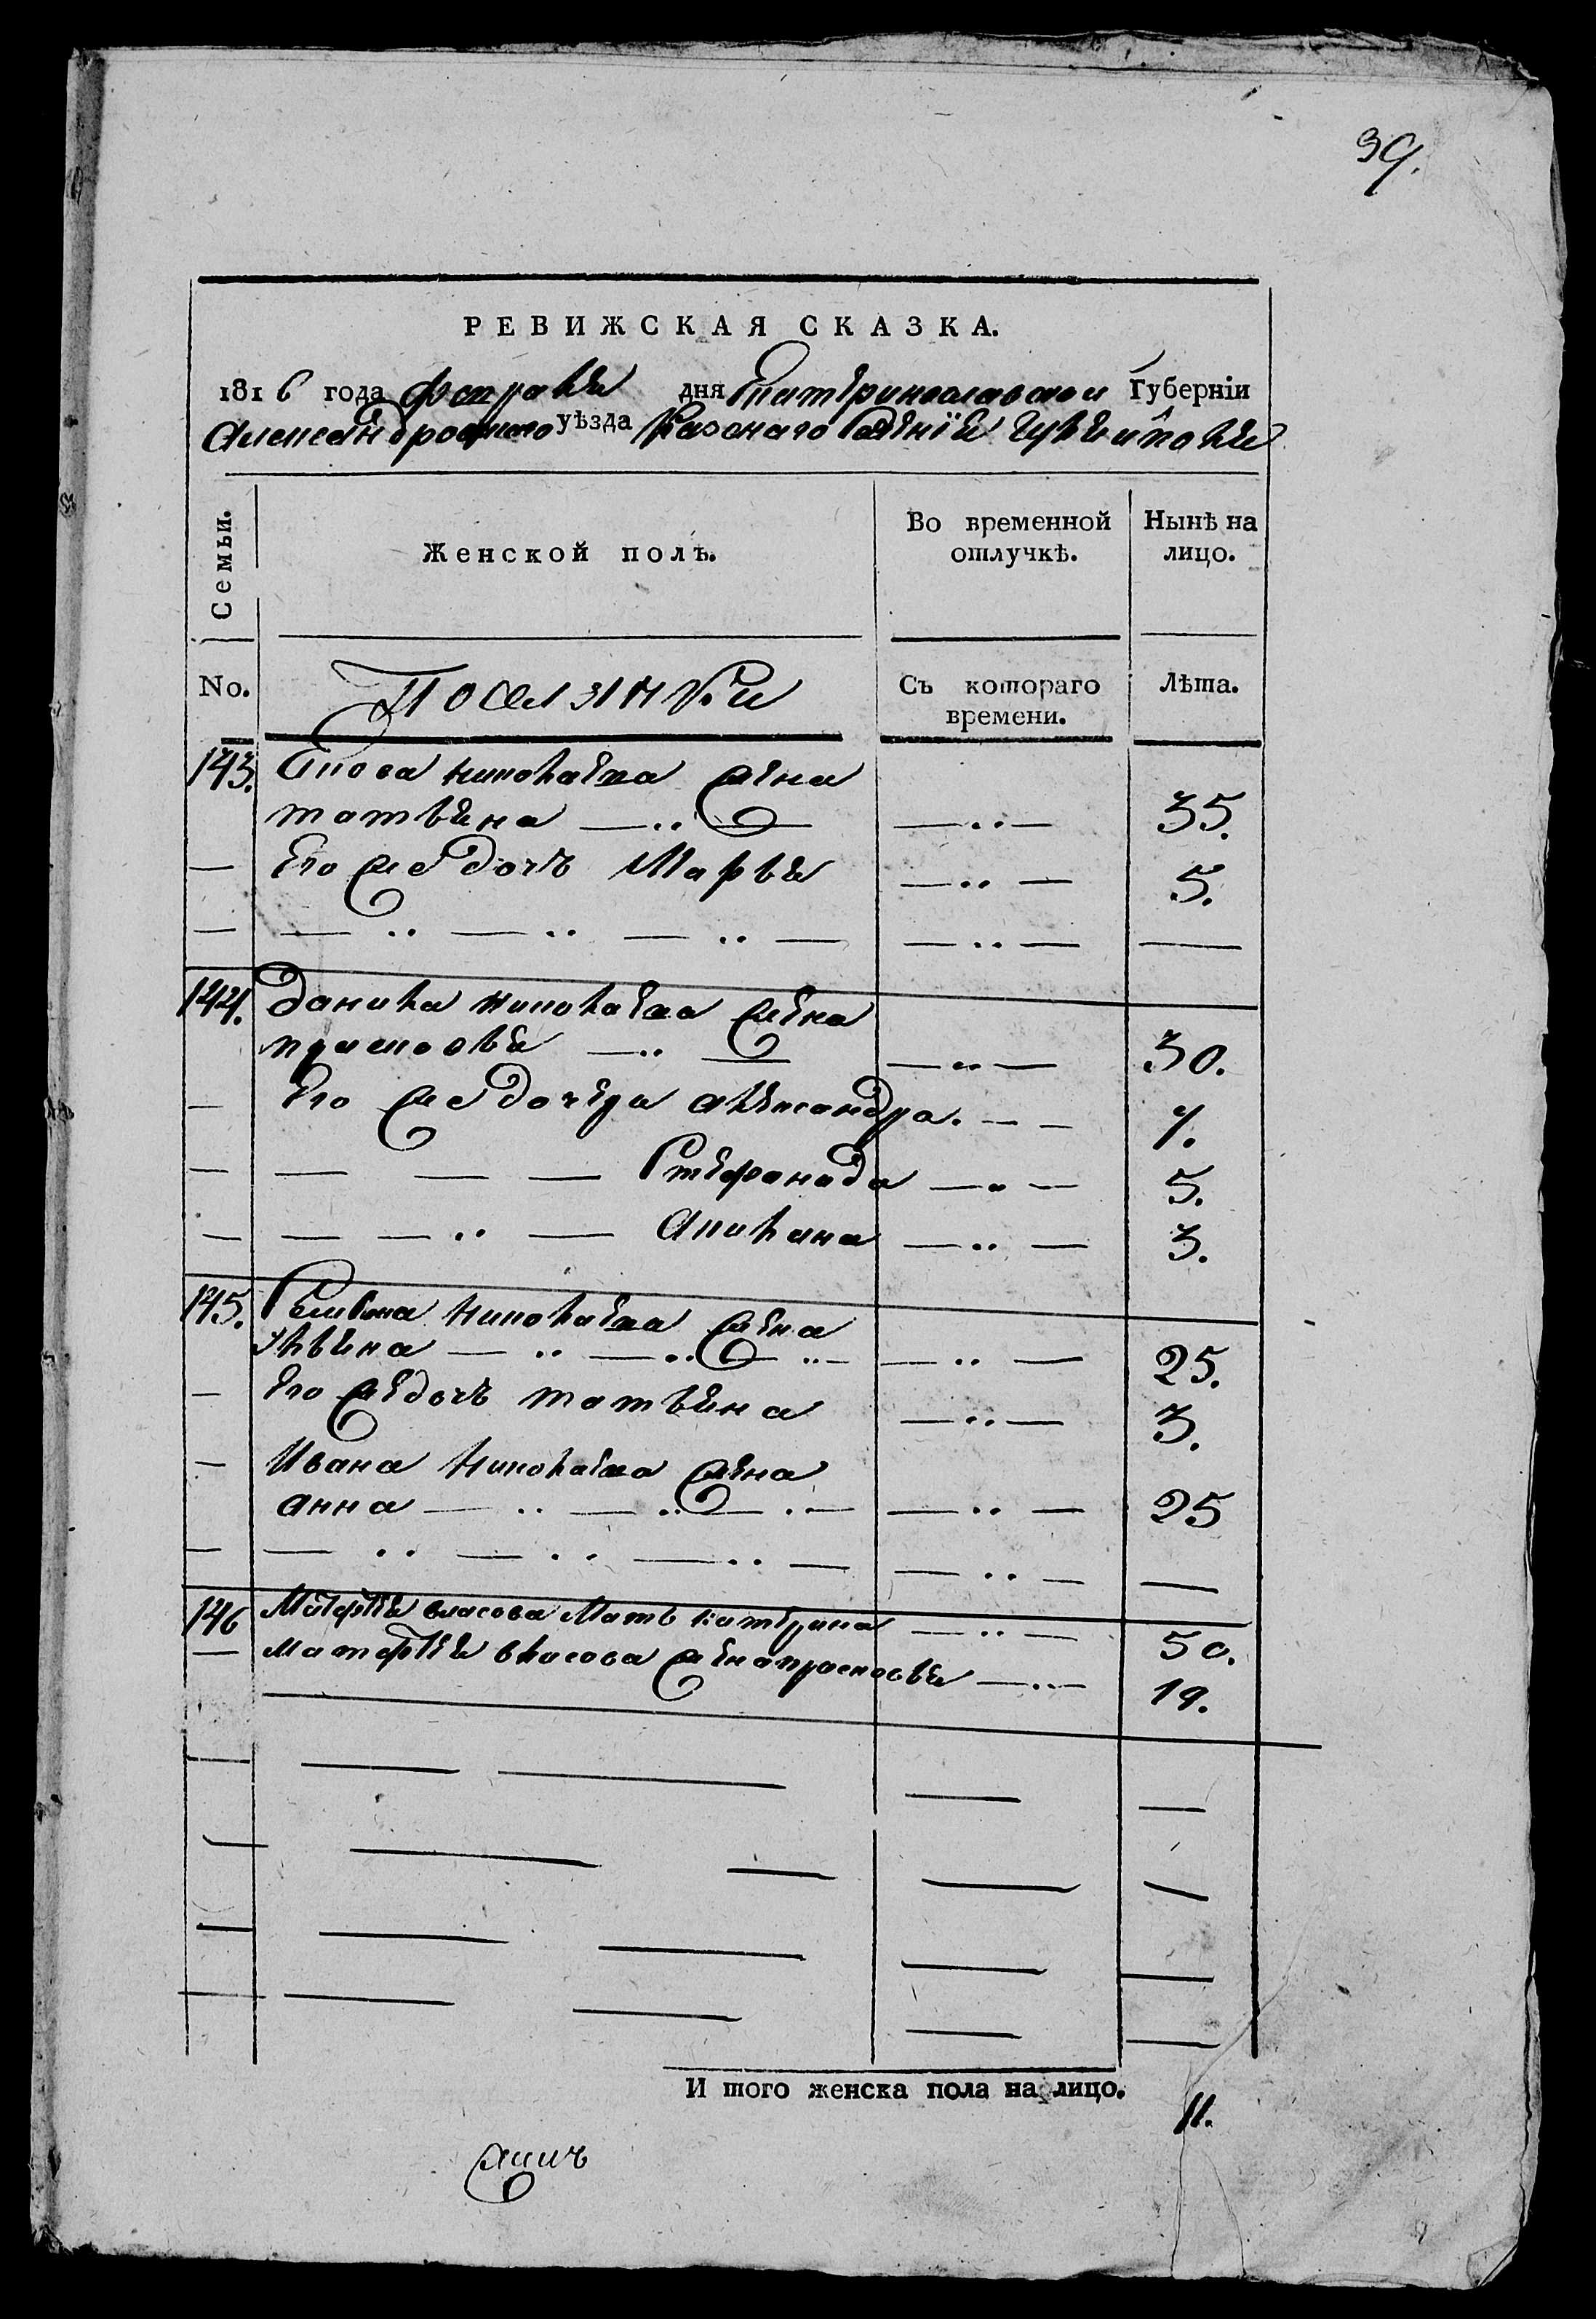 39.
РЕВИЖСКАЯ СКАЗКА.
1816 года февраля дня Екатеринославской Губерніи
Александровского уѣзда Казенаго Селенія Гуляйполя
Семьи.
Женской полъ.
Во временной отлучкѣ.
Нынѣ на лицо.
No.
Поселянѣки
Съ котораго времени.
Лѣта.
143. Якова николаева жена
татьяна — .. — — .. — 35.
— Его же дочь Марья — .. — 5.
— — .. — .. — .. — — .. — —
144. Данила николаева жена
прасковья — .. — — .. — 30.
— Его же дочери александра. — — 7.
— — — — Стефанида — . — 5.
— — — .. — Акилина — .. — 3.
145. николаева жена
ульяна — .. — .. — .. — — .. — 25.
— Его же дочь татьяна — .. — 3.
— Ивана николаева жена
анна — .. — .. — .. — — .. — 25
— — .. — .. — .. — — .. — —
146 Матфея власова Мать катерина — .. — 50.
— Матфея власова жена прасковья — .. — 19.
И того женска пола на лицо. 11.